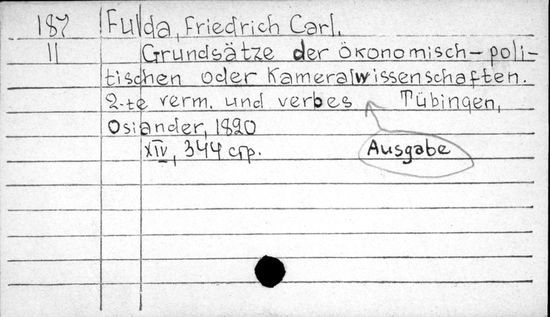 187 Fulda, Friedrich Carl.
II Grundsätze der ökonomisch-poli-
tischen oder Kameralwissenschaften.
2-te verm. und verbes Tübingen,
Osiander, 1820
XIV, 344 стр.
Ausgabe